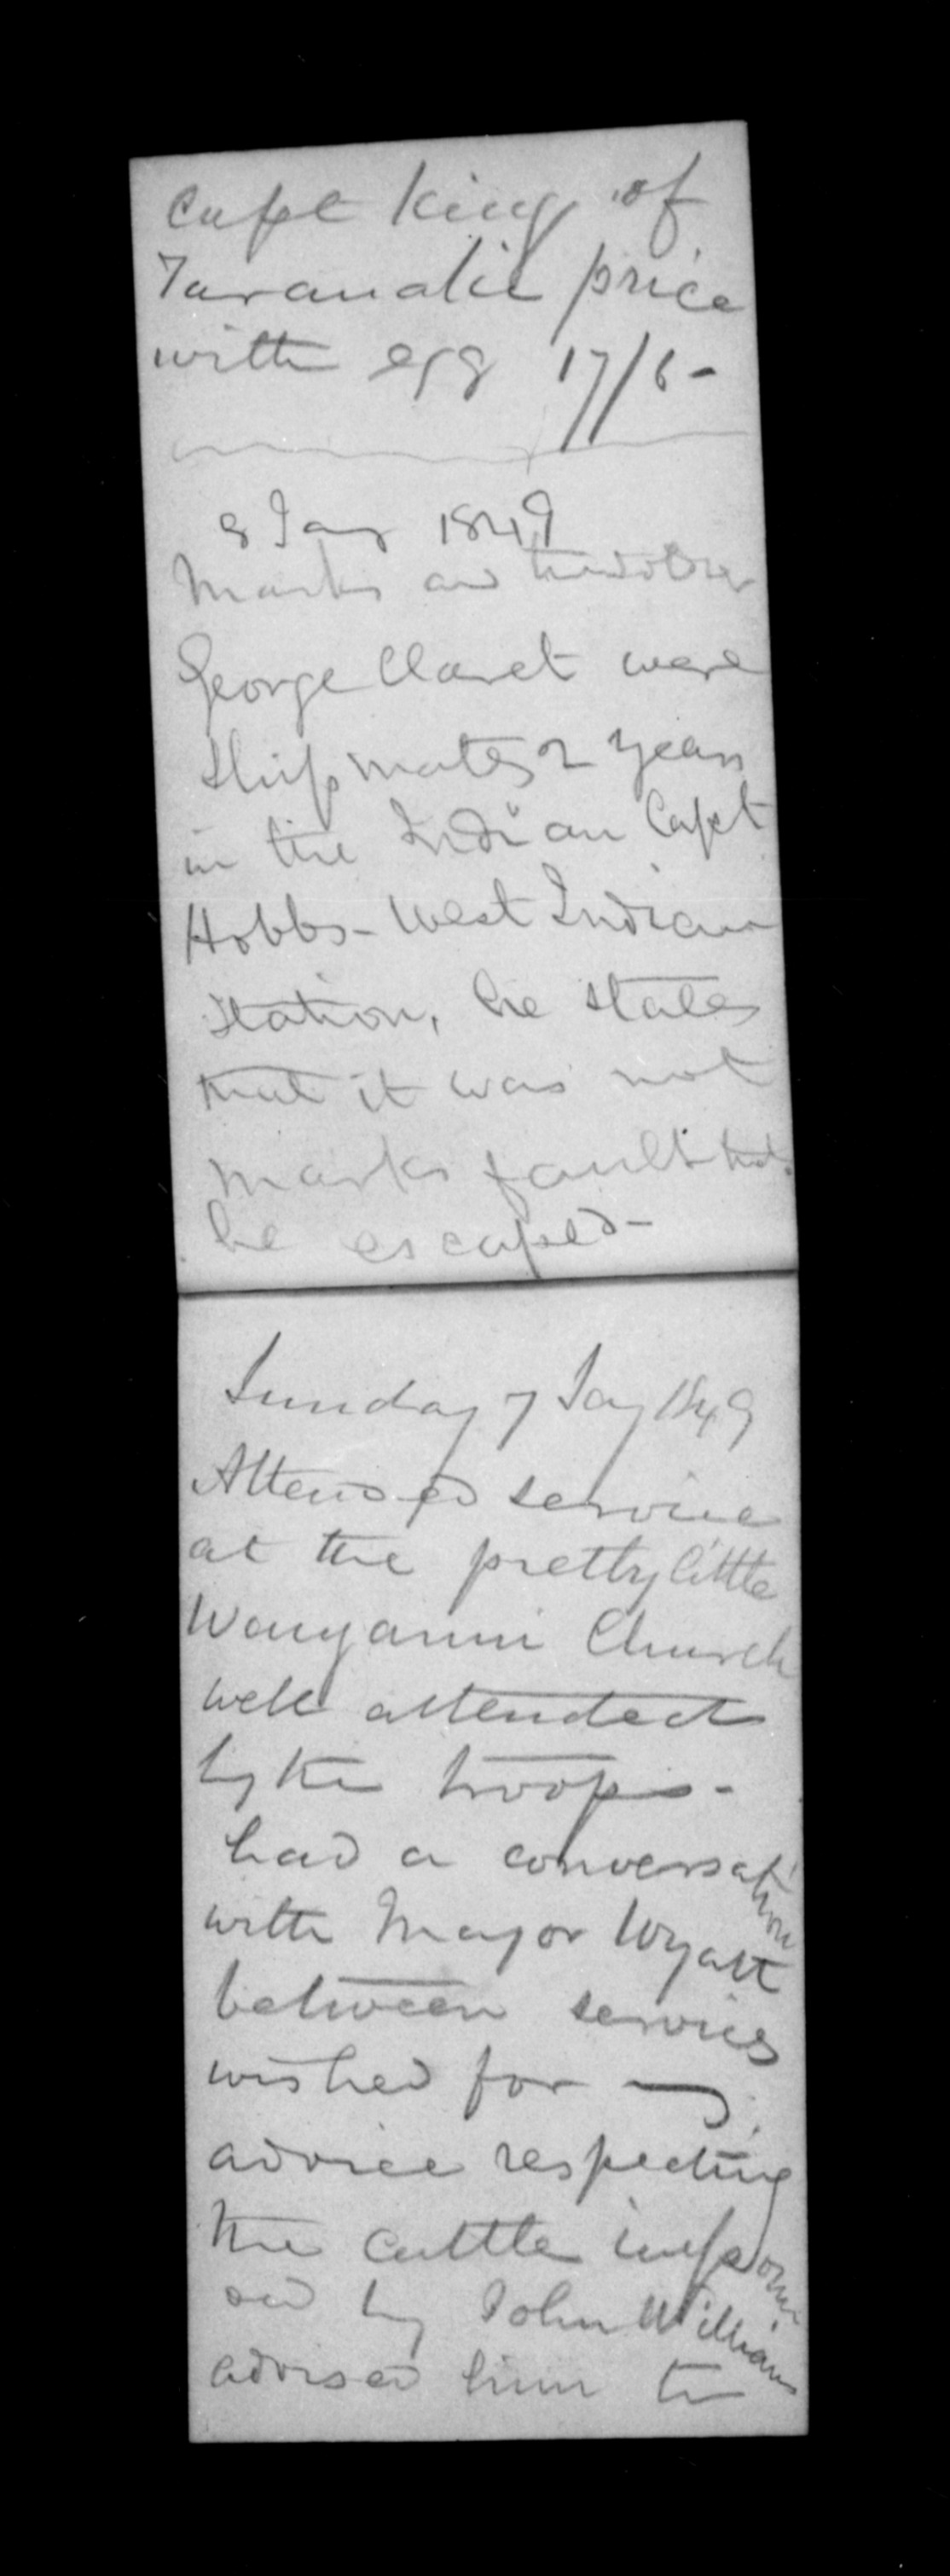 Capt King of
Taranaki price
with egg 17/6-
8 Jany 1849
Marks and
George Claret were
Shipmates 2 years
in the Indian Capt
Hobbs - West Indian
Station, he states
that it was not
Marks fault that
he escaped -
Sunday 7 Jany 1849
Attended service
at the pretty little
Wanganui Church
well attended
by the troops -
had a conversation
with Major Wyatt
between services
wished for my
advice respecting
the cattle impoun
ed by John Williams
advised him to